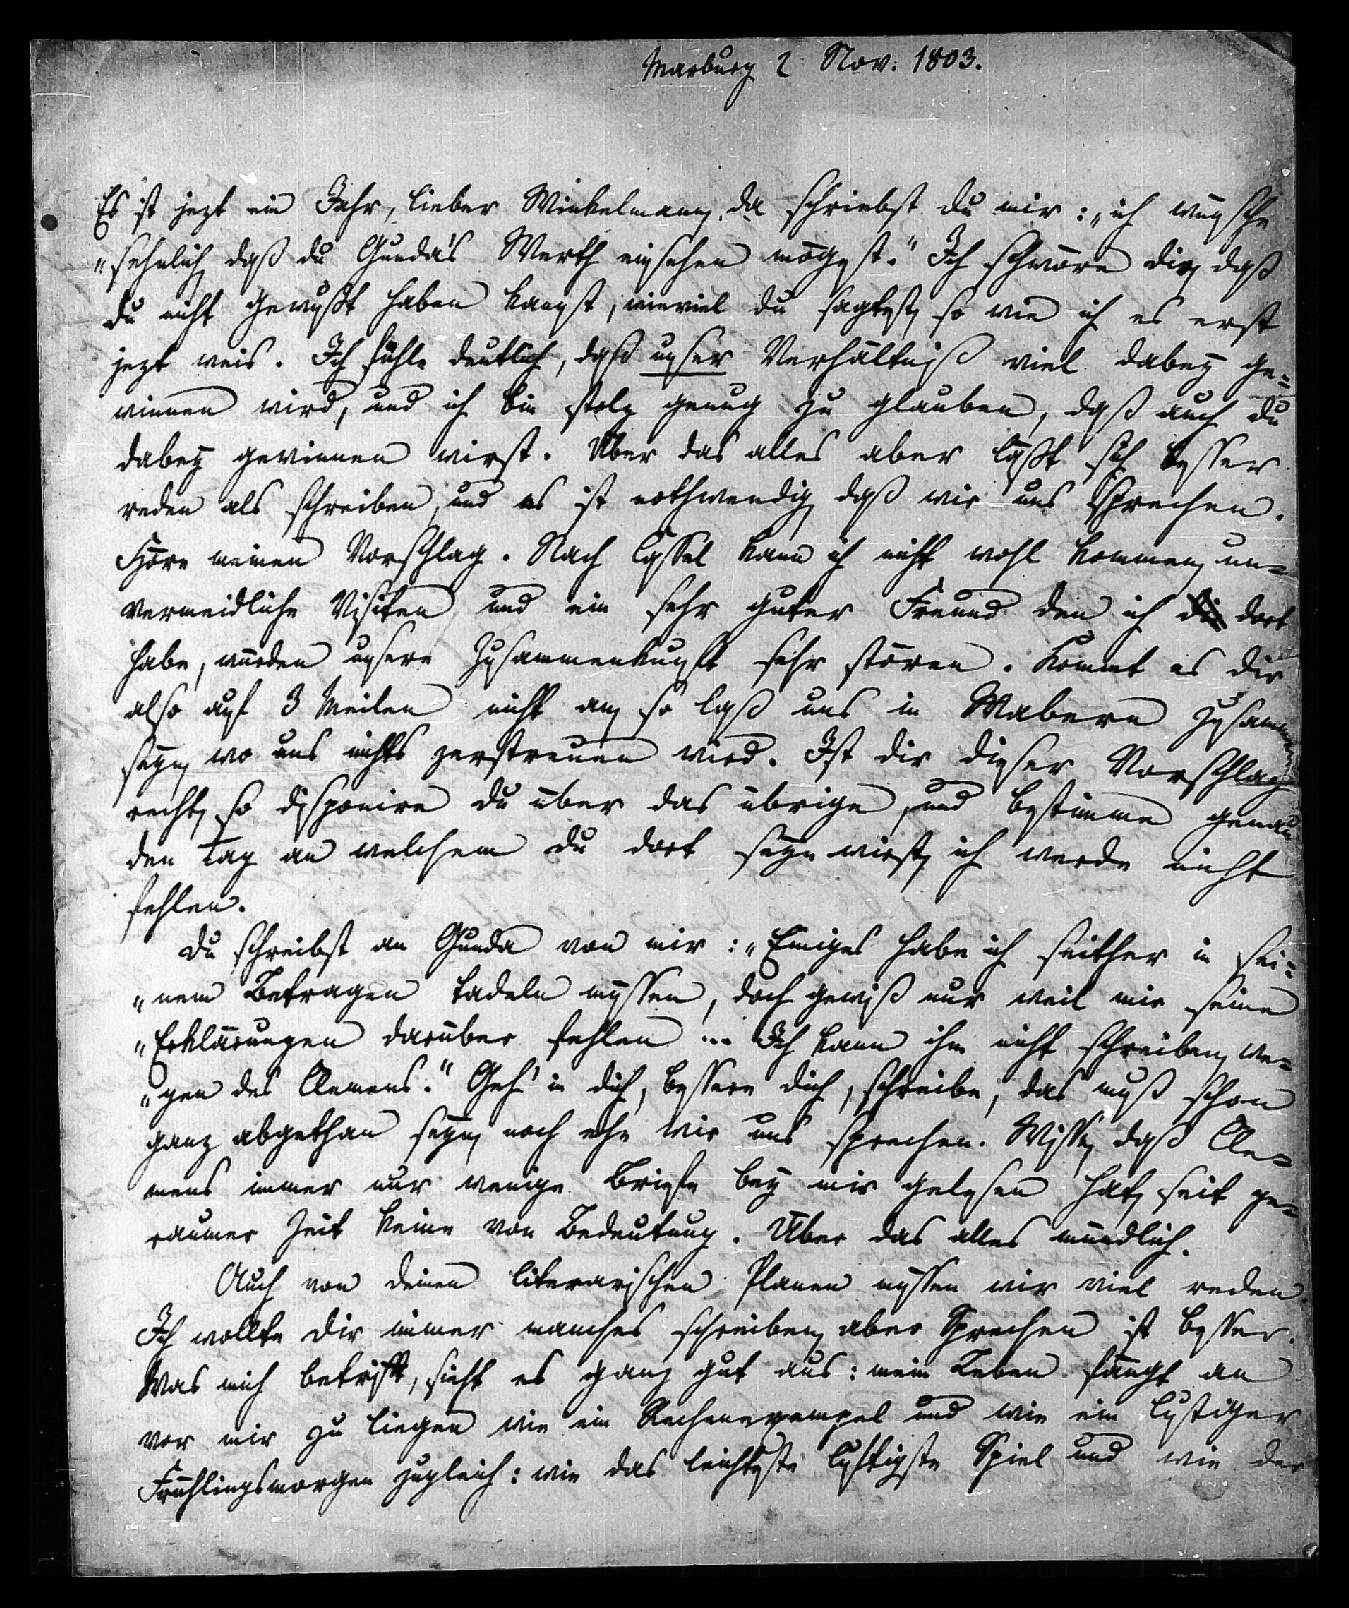 Marburg 2 Nov. 1803.
Es ist jezt ein Jahr, lieber Winkelmann, da schriebst du mir: „ich wünsche
„sehnlich, daß du Gunda's Werth einsehen mögest.“ Ich schwöre dir, daß
du nicht gewußt haben kannst, wieviel du sagtest, so wie ich es erst
jezt weis. Ich fühle deutlich, daß unser Verhältniß viel dabey ge=
winnen wird, und ich bin stolz genug zu glauben, daß auch du
dabey gewinnen wirst. Über das alles aber läßt sich besser
reden als schreiben, und es ist nothwendig, daß wir uns sprechen.
Höre meinen Vorschlag. Nach Cassel kann ich nicht wohl kommen, un=
vermeidliche Visiten und ein sehr guter Freund den ich dort
habe, würden unsere Zusammenkunft sehr stören. Kommt es dir
also auf 3 Meilen nicht an, so laß uns in Wabern zusammen
seyn, wo uns nichts zerstreuen wird. Ist dir dieser Vorschlag
recht, so disponire du über das übrige, und bestimme genau
den Tag an welchem du dort seyn wirst, ich werde nicht
fehlen.
Du schreibst an Gunda von mir: „Einiges habe ich seither in sei=
„nem Betragen tadeln müssen, doch gewiß nur weil mir seine
„Erklärungen darüber fehlen ... Ich kann ihm nicht schreiben, we=
„gen des Clemens.“ Geh' in dich, bessere dich, schreibe, das muß schon
ganz abgethan seyn, noch ehe wir uns sprechen. Wisse, daß Cle=
mens immer nur wenige Briefe bey mir gelesen hat, seit ge=
raumer Zeit keine von Bedeutung. Über das alles mündlich.
Auch von deinen literarischen Planen müssen wir viel reden.
Ich wollte dir immer manches schreiben, aber Sprechen ist besser.
Was mich betrifft, sieht es ganz gut aus: mein Leben fängt an
vor mir zu liegen wie ein Rechenexempel und wie ein lustiger
Frühlingsmorgen zugleich: wie das leichteste lustigste Spiel und wie der